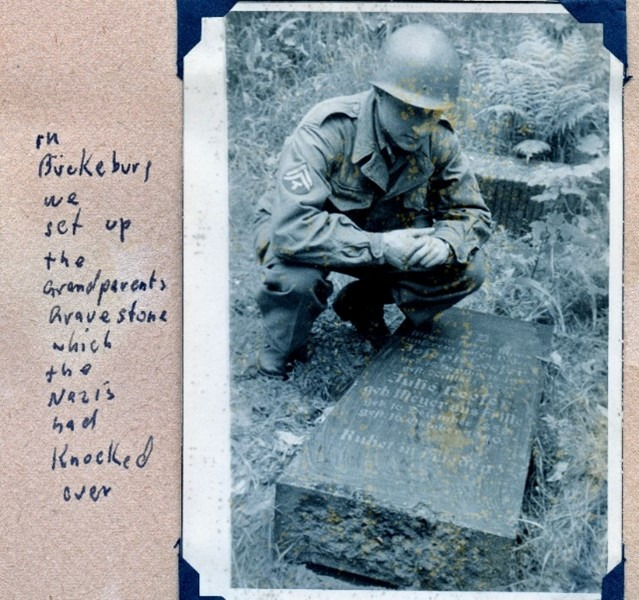 in
Bückeburg
we
set up
the
grandparents
Gravestone
which
the
Nazis
had
Knocked
over
Julie
geb
geb